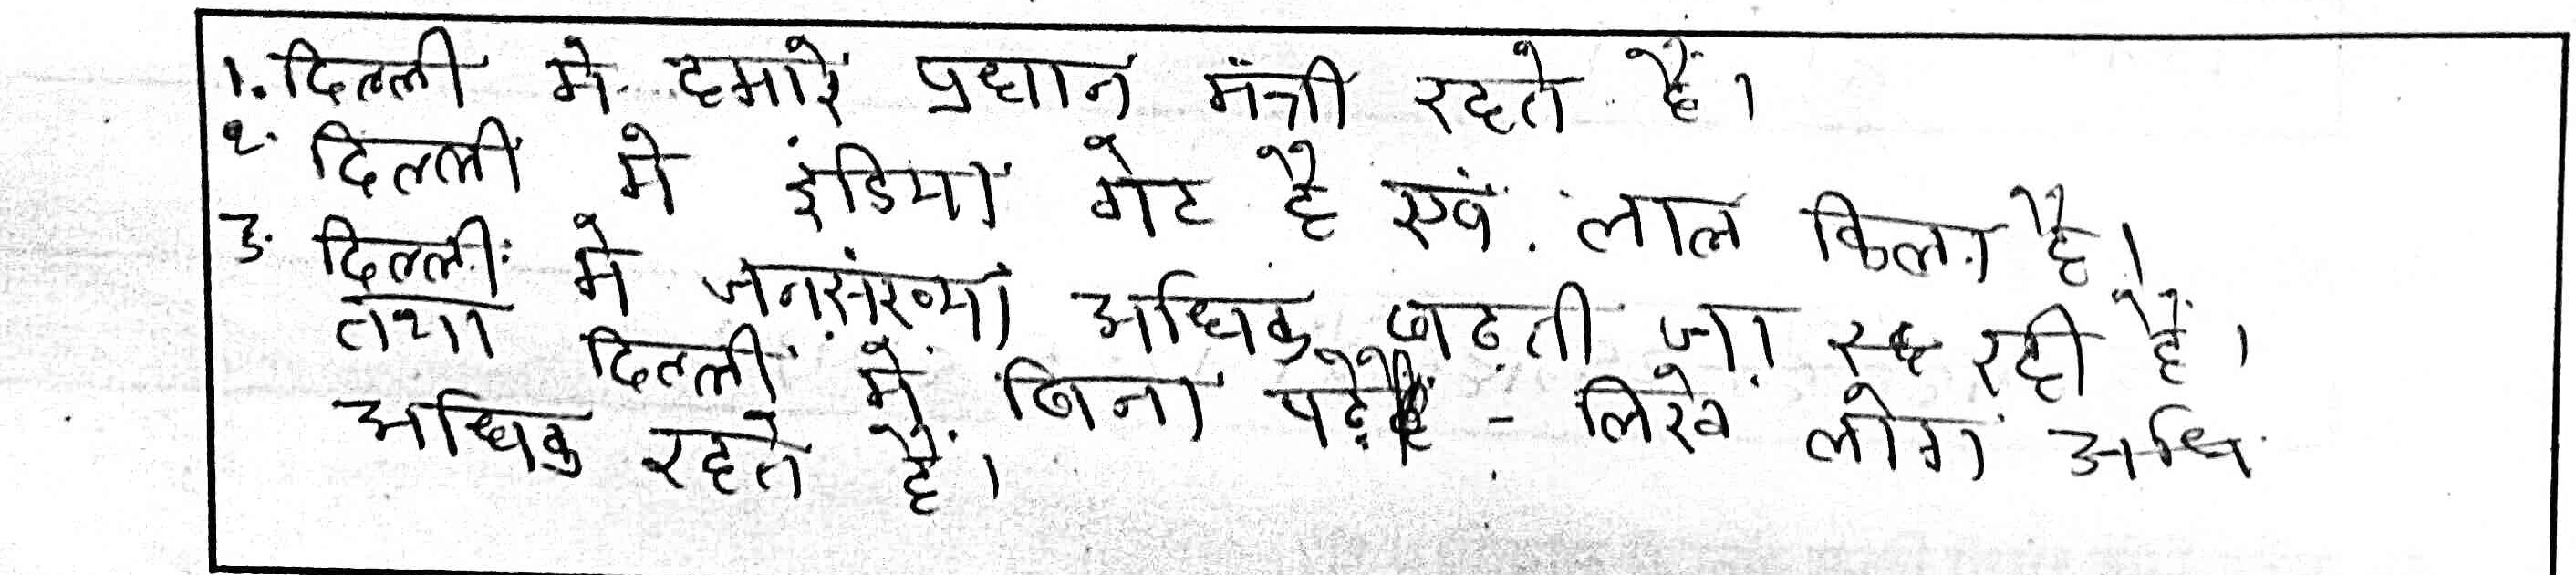 1. दिल्ली मे हमारे प्रधान मंत्री रहते हैं।
२. दिल्ली मे इंडिया गेट है एवं लाल किला है।
३. दिल्ली मे जनसंख्या अधिक बढ़ती जा रही है।
तथा दिल्ली में बिना पढ़े - लिखे लोग अधि
अधिक रहते हैं।